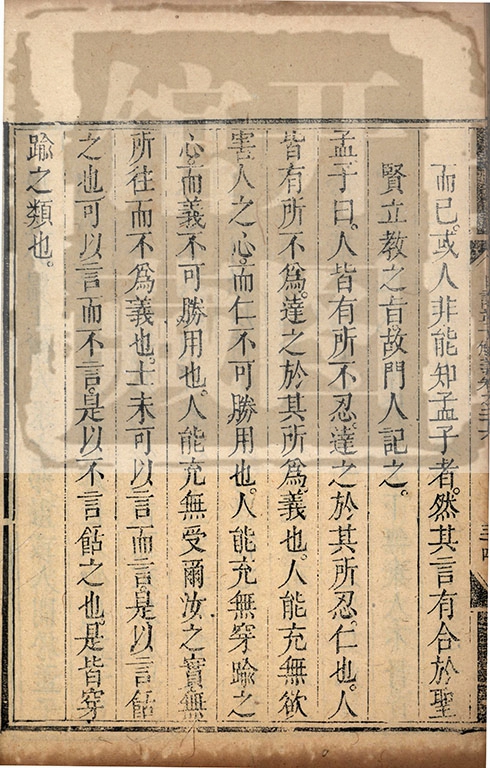 而已。或人非能知孟子者。然其言有合於聖
賢立教之旨。故門人記之。
孟子曰。人皆有所不忍。達之於其所忍。仁也。人
皆有所不爲。達之於其所爲。義也。人能充無欲
害人之心。而仁不可勝用也。人能充無穿踰之
心。而義不可勝用也。人能充無受爾汝之實。無
所往而不爲義也。士未可以言而言。是以言餂
之也。可以言而不言。是以不言餂之也。是皆穿
踰之類也。